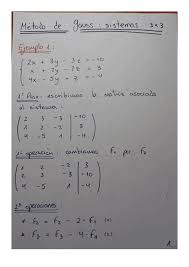 Método de Gauss: sistemas 3x3
Ejemplo 1:
2x + 3y - 3z = -10
x + 3y - 2z = 3
4x - 5y - z = -4
1º Paso: escribimos la matriz asociada al sistema:
2 3 -3 | -10
1 3 -2 | 3
4 -5 -1 | -4
1ª operación cambiamos F₁ por F₂
1 2 -2 | 3
2 3 -3 | -10
4 -5 1 | -4
2ª operaciones
• F₂ = F₂ - 2·F₁
• F₃ = F₃ - 4·F₁
1